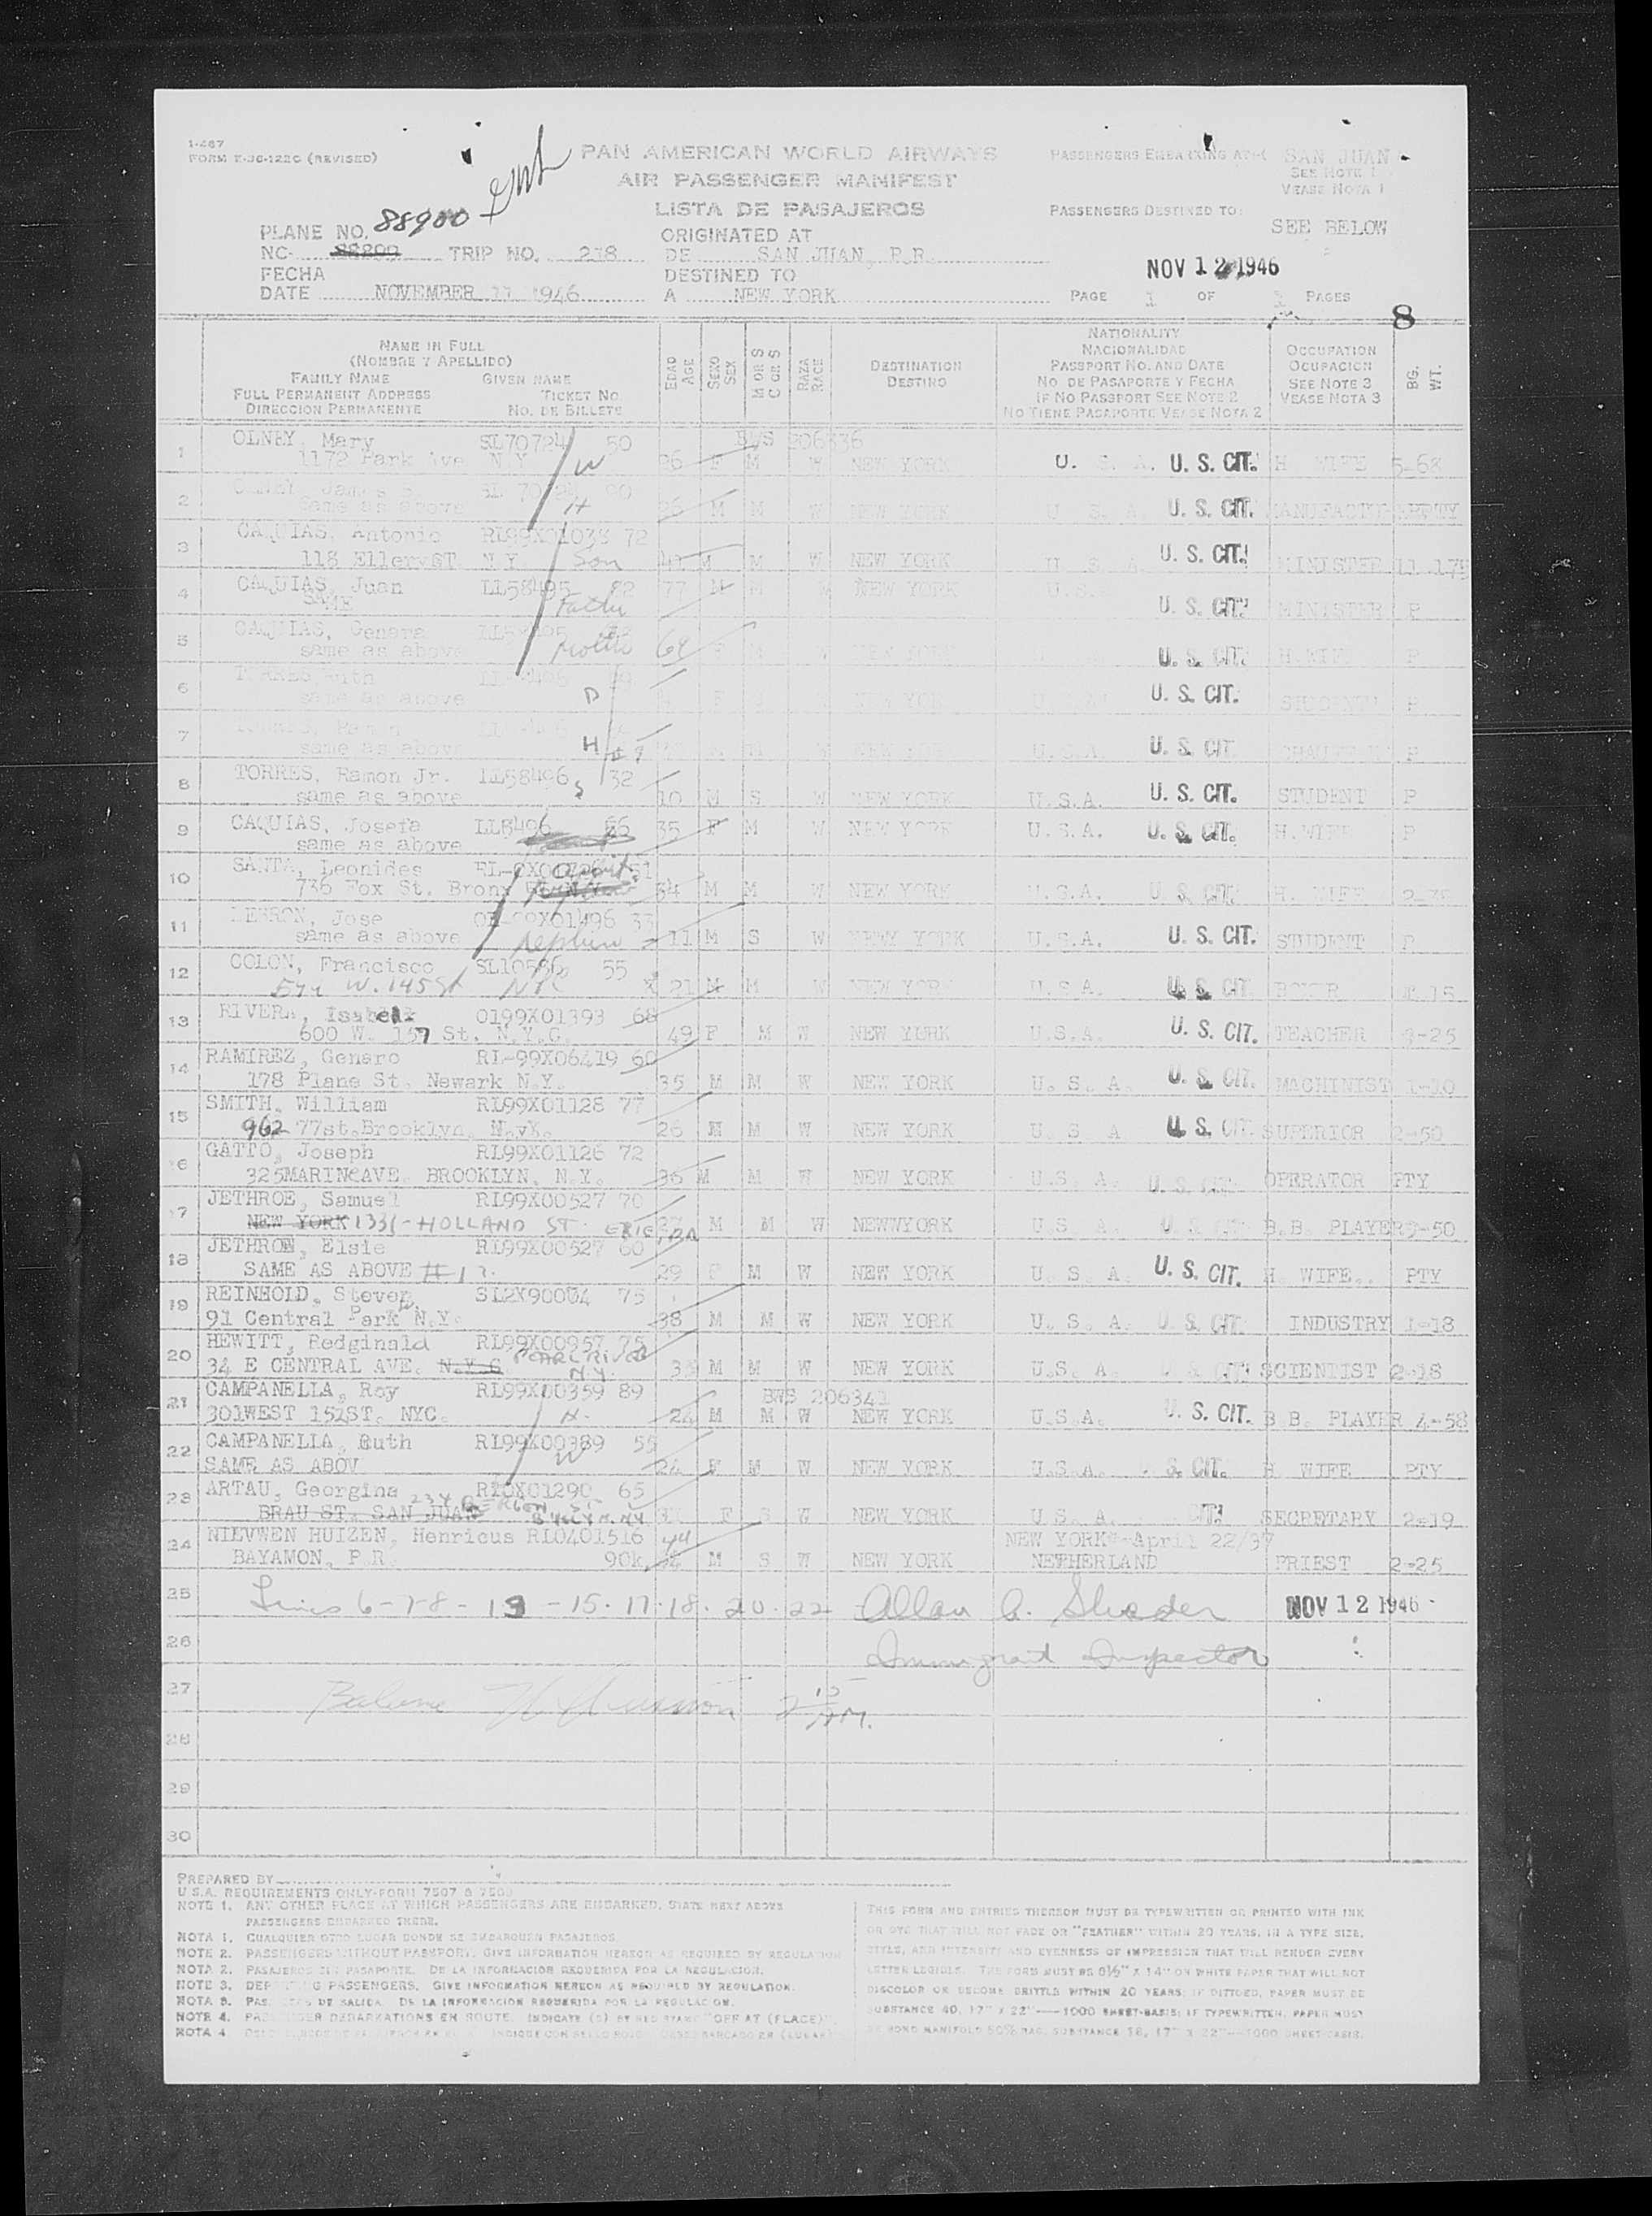 1-467
FORM K-JC-122C (REVISED)
PAN AMERICAN WORLD AIRWAYS
AIR PASSENGER MANIFEST
LISTA DE PASAJEROS
PASSENGERS EMBARKING AT- SAN JUAN
SEE NOTE 1
VEASE NOTA 1
PASSENGERS DESTINED TO:
SEE BELOW
PLANE NO. 88900
NC- TRIP NO. 238
FECHA
DATE NOVEMBER 11 1946
ORIGINATED AT
DE SAN JUAN, P.R.
DESTINED TO
A NEW YORK
NOV 12 1946
PAGE 1 OF PAGES
8
NAME IN FULL
(NOMBRE Y APELLIDO)
FAMILY NAME GIVEN NAME
FULL PERMANENT ADDRESS TICKET NO
DIRECCION PERMANENTE NO. DE BILLETE
EDAD AGE
SEXO SEX
M OR S
C OR S
RAZA RACE
DESTINATION
DESTINO
NATIONALITY
NACIONALIDAD
PASSPORT NO. AND DATE
NO. DE PASAPORTE Y FECHA
IF NO PASSPORT SEE NOTE 2
NO TIENE PASAPORTE VEASE NOTA 2
OCCUPATION
OCUPACION
SEE NOTE 3
VEASE NOTA 3
BG. WT.
1 OLNEY, Mary SL70724 50 BWS 206336
1172 Park Ave N.Y. W 26 F M W NEW YORK U. S. A. U. S. CIT. H WIFE 5-68
2 OLNEY James
same as above H 26 M M W NEW YORK U S A U. S. CIT.
3 CAQUIAS, Antonio RL99X01038 72
118 Ellery ST. N.Y. Son 41 M M W NEW YORK U S A U. S. CIT. MINISTER 11 175
4 CAQUIAS, Juan LL58495 82 77 M M W NEW YORK U.S.
SAME Father U. S. CIT. MINISTER P
5 CAQUIAS, Genara
same as above Mother 64 F M W NEW YORK U. S. CIT. H.WIFE P
6 TORRES, Ruth
same as above D F NEW YORK U. S. CIT. STUDENT P
7
same as above H W NEW YORK U.S.A. U. S. CIT P
8 TORRES, Ramon Jr. LL58496 32
same as above S 10 M S W NEW YORK U.S.A. U. S. CIT. STUDENT P
9 CAQUIAS, Josefa LL5496 56 35 F M W NEW YORK U.S.A. U. S. CIT. H.WIFE P
same as above
10 SANTA, Leonides 51
736 Fox St. Bronx 34 M M W NEW YORK U.S.A. U. S. CIT. H. WIFE
11 LEBRON, Jose 99X01496 33
same as above Nephew 11 M S W NEWY YORK U.S.A. U. S. CIT. STUDENT P
12 COLON, Francisco SL10586 55
W. 145 St NYC X 21 M M W NEW YORK U.S.A. U. S. CIT
13 RIVERA, Isabel 0199X01393 68
600 W. 157 St. N.Y.C. 49 F M W NEW YORK U.S.A. U. S. CIT. TEACHER 3-25
14 RAMIREZ, Genaro RI-99X06419 60
178 Plane St. Newark N.Y. 35 M M W NEW YORK U. S. A. U. S. CIT. MACHINIST 1-10
15 SMITH, William RL99X01128 77
962 77st.Brooklyn, N.yK. 26 M M W NEW YORK U S A U. S. CIT. SUPERIOR 2-50
16 GATTO, Joseph RL99X01126 72
325MARINeAVE. BROOKLYN, N.Y. 36 M M W NEW YORK U.S. A. U. S. CIT. OPERATOR PTY
17 JETHROE, Samuel RL99X00527 70
NEW YORK 1331-HOLLAND ST. ERIE, PA 27 M M W NEWNYORK U S A. U. S. CIT. B.B. PLAYER 3-50
18 JETHROE, Elsie RL99X00527 60
SAME AS ABOVE # 17. 29 F M W NEW YORK U. S. A. U. S. CIT. H. WIFE. PTY
19 REINHOLD, Steven SL2X90004 75
91 Central Park W. N.Y. 38 M M W NEW YORK U. S. A. U. S. CIT. INDUSTRY 1-18
20 HEWITT, Redginald RL99X00957 75
34 E CENTRAL AVE. N.Y.C PEARL RIVER N.Y. M M W NEW YORK U.S. A. CIT SCIENTIST 2-18
21 CAMPANELLA, Roy RL99X00359 89 BWS 206341
301WEST 151ST. NYC. H. 24 M M W NEW YORK U.S.A. U. S. CIT. B B. PLAYER 4-58
22 CAMPANELLA, Ruth RL99X00389 55
SAME AS ABOV W 24 F M W NEW YORK U.S.A. S. CIT. H WIFE PTY
23 ARTAU, Georgina 65
BRAU ST. SAN JUAN F S W NEW YORK U. S. A. CIT. SECRETARY 2-19
24 NIEVWEN HUIZEN, Henricus RL0401516 44 NEW YORK- April 22/37
BAYAMON, P.R. 90k M S W NEW YORK NETHERLAND PRIEST 2-25
25 Lines 6-7-8-13-15-17-18-20-22 Allan A. Shader NOV 12 1946
26 Immigrant Inspector
27 Balance
28
29
30
PREPARED BY
U.S.A. REQUIREMENTS ONLY-FORM 7507 & 7509
NOTE 1. ANY OTHER PLACE AT WHICH PASSENGERS ARE EMBARKED, STATE NEXT ABOVE
PASSENGERS EMBARKED THERE.
NOTA 1. CUALQUIER OTRO LUGAR DONDE SE EMBARQUEN PASAJEROS.
NOTE 2. PASSENGERS WITHOUT PASSPORT, GIVE INFORMATION HEREON AS REQUIRED BY REGULATION
NOTA 2. PASAJEROS SIN PASAPORTE. DE LA INFORMACION REQUERIDA POR LA REGULACION.
NOTE 3. DEPARTING PASSENGERS. GIVE INFORMATION HEREON AS REQUIRED BY REGULATION.
NOTA 3. PASAJEROS DE SALIDA. DE LA INFORMACION REQUERIDA POR LA REGULACION.
NOTE 4. PASSENGER DEBARKATIONS EN ROUTE. INDICATE (S) BY RED STAMP "OFF AT (PLACE)".
NOTA 4
THIS FORM AND ENTRIES THEREON MUST BE TYPEWRITTEN OR PRINTED WITH INK
OR DYE THAT WILL NOT FADE OR "FEATHER" WITHIN 20 YEARS, IN A TYPE SIZE,
STYLE, AND INTENSITY AND EVENNESS OF IMPRESSION THAT WILL RENDER EVERY
LETTER LEGIBLE. THE FORM MUST BE 8½" X 14" ON WHITE PAPER THAT WILL NOT
DISCOLOR OR BECOME BRITTLE WITHIN 20 YEARS; IF DITTOED, PAPER MUST BE
SUBSTANCE 40, 17" X 22"—1000 SHEET-BASIS; IF TYPEWRITTEN, PAPER MUST
BE BOND MANIFOLD 50% RAG, SUBSTANCE 16, 17" X 22"—1000 SHEET-BASIS.